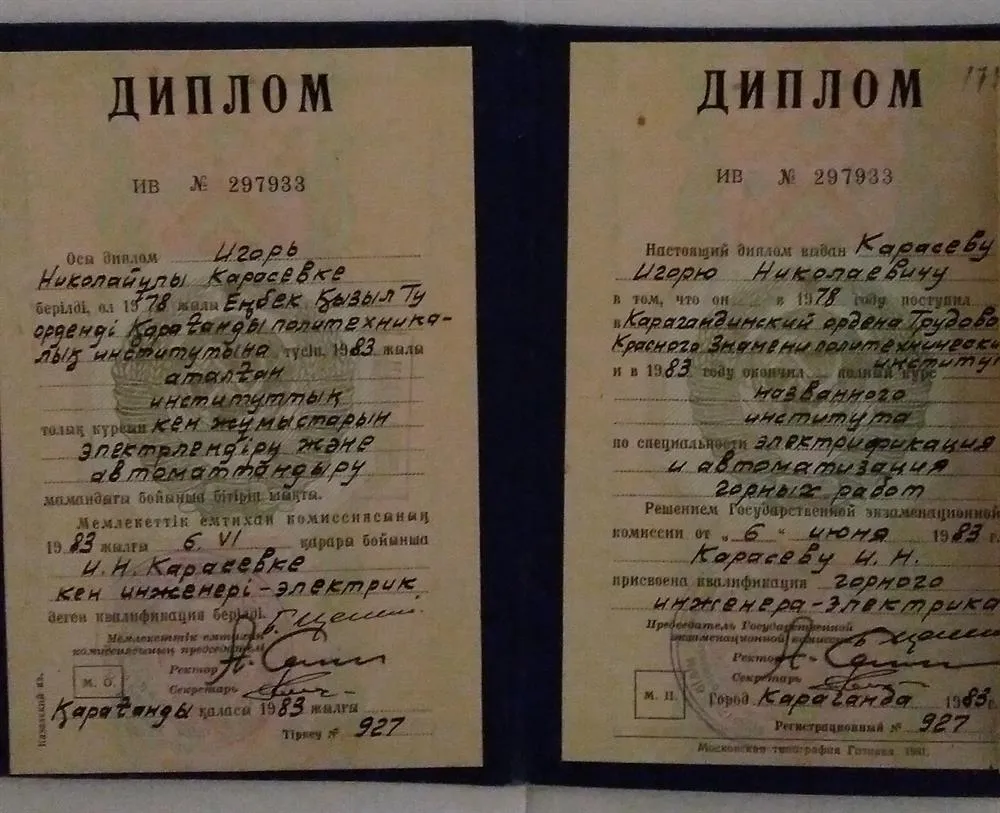 ДИПЛОМ
ИВ № 297933
Осы диплом Игорь
Николайұлы Карасевке
берілді, ол 1978 жылы Еңбек Қызыл Ту
орденді Қарағанды политехника-
лық институтына түсіп, 1983 жылы
аталған
институттың
толық курсын кен жұмыстарын
электрлендіру және
автоматтандыру
мамандығы бойынша бітіріп шықты.
Мемлекеттік емтихан комиссиясының
1983 жылғы 6. VI қарары бойынша
И.Н. Карасевке
кен инженері-электрик
деген квалификация берілді.
Мемлекеттік емтихан
комиссиясының председателі
Ректор
Секретарь
М. О.
Қарағанды қаласы 1983 жылғы
Тіркеу № 927
Казахский яз.
ДИПЛОМ
ИВ № 297933
Настоящий диплом выдан Карасеву
Игорю Николаевичу
в том, что он в 1978 году поступил
в Карагандинский ордена Трудово
Красного Знамени политехнически
институ
и в 1983 году окончил полный курс
названного
института
по специальности электрификация
и автоматизация
горных работ
Решением Государственной экзаменационной
комиссии от „6“ июня 1983 г.
Карасеву И. Н.
присвоена квалификация горного
инженера-электрика
Председатель Государственной
экзаменационной комиссии
Ректор
Секретарь
М. П.
Город Караганда 1983 г.
Регистрационный № 927
Московская типография Гознака. 1981.